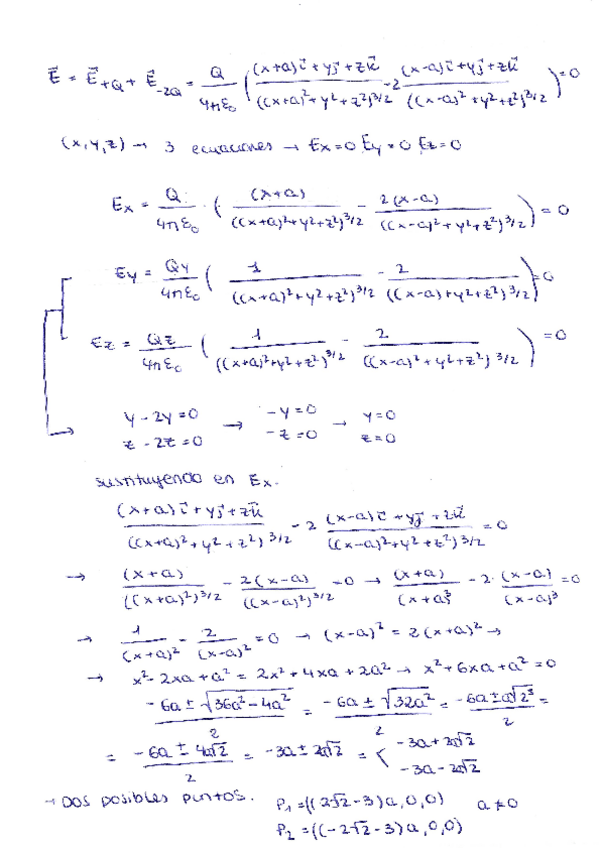 E⃗ = E⃗+Q + E⃗-2Q = Q/4πε₀ ( ((x+a)i⃗ + yj⃗ + zk⃗)/((x+a)²+y²+z²)^3/2 - 2 ((x-a)i⃗ + yj⃗ + zk⃗)/((x-a)²+y²+z²)^3/2 ) = 0
(x,y,z) → 3 ecuaciones → Ex=0 Ey=0 Ez=0
Ex = Q/4πε₀ · ( (x+a)/((x+a)²+y²+z²)^3/2 - 2(x-a)/((x-a)²+y²+z²)^3/2 ) = 0
Ey = Qy/4πε₀ ( 1/((x+a)²+y²+z²)^3/2 - 2/((x-a)+y²+z²)^3/2 ) = 0
Ez = Qz/4πε₀ ( 1/((x+a)²+y²+z²)^3/2 - 2/((x-a)²+y²+z²)^3/2 ) = 0
y - 2y = 0 → -y = 0 → y = 0
z - 2z = 0 → -z = 0 → z = 0
sustituyendo en Ex.
((x+a)i⃗ + yj⃗ + zk⃗)/((x+a)²+y²+z²)^3/2 - 2 ((x-a)i⃗ + yj⃗ + zk⃗)/((x-a)²+y²+z²)^3/2 = 0
→ (x+a)/((x+a)²)^3/2 - 2(x-a)/((x-a)²)^3/2 = 0 → (x+a)/(x+a)³ - 2·(x-a)/(x-a)³ = 0
→ 1/(x+a)² - 2/(x-a)² = 0 → (x-a)² = 2(x+a)² →
→ x² - 2xa + a² = 2x² + 4xa + 2a² → x² + 6xa + a² = 0
(-6a ± √36a²-4a²)/2 = (-6a ± √32a²)/2 = (-6a ± a√2⁵)/2 =
= (-6a ± 4a√2)/2 = -3a ± 2a√2 = < -3a + 2a√2
-3a - 2a√2
→ Dos posibles puntos. P₁ = ((2√2-3)a,0,0) a≠0
P₂ = ((-2√2-3)a,0,0)